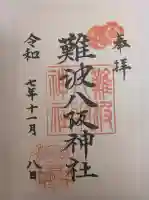 奉拝
難波八阪神社
令和
七年十一月
八日